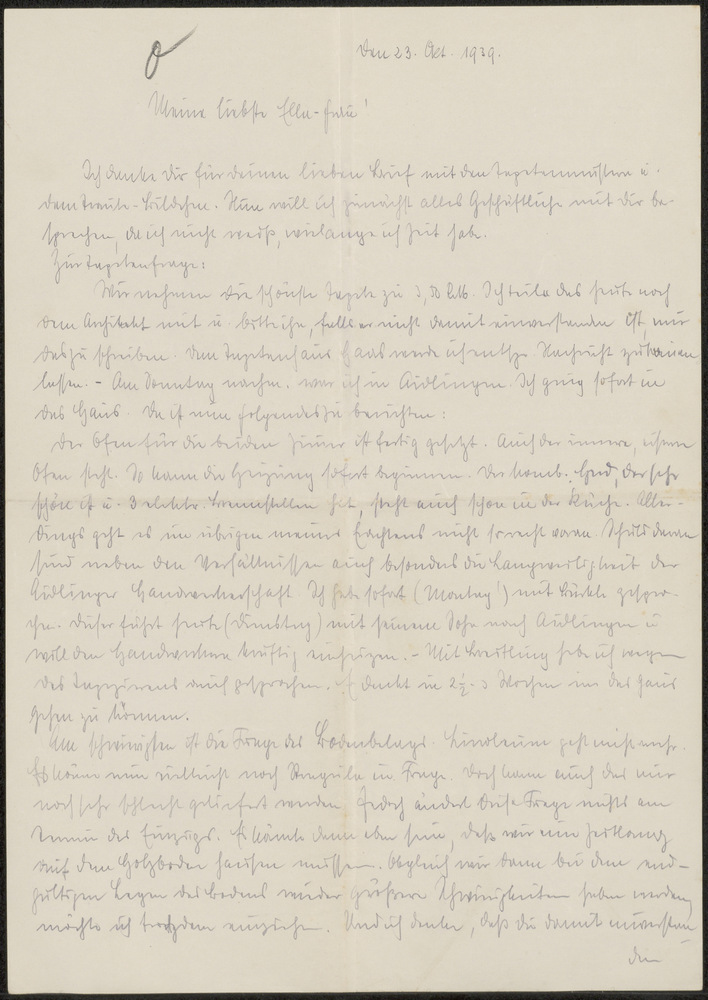 Den 23. Okt. 1939.
Meine liebste Ella-Frau!
Ich danke Dir für deinen lieben Brief mit den Tapetenmustern u.
dem Traute-Bildchen. Nun will ich zunächst alles Geschäftliche mit Dir be-
sprechen, da ich nicht weiß, wie lange ich Zeit habe.
Zur Tapetenfrage:
Wir nehmen die schönste Tapete zu 3,50 RM. Ich teile das heute noch
dem Architekt mit u. bitte ihn, falls er nicht damit einverstanden ist mir
das zu schreiben. Dem Tapetenhaus Haas werde ich Nachricht zukommen
lassen. - Am Sonntag nachm. war ich in Aidlingen. Ich ging sofort in
das Haus. Da ist nun folgendes zu berichten:
Der Ofen für die beiden Zimmer ist fertig gesetzt. Auch der innere, eiserne
Ofen steht. So kann die Heizung sofort beginnen. Der komb. Herd, der sehr
schön ist u. 3 elektr. Brennstellen hat, steht auch schon in der Küche. Aller-
dings geht es im übrigen meines Erachtens nicht so recht voran. Schuld daran
sind neben den Verhältnissen auch besonders die Langweiligkeit der
Aidlinger Handwerkerschaft. Ich habe sofort (Montag!) mit Bürkle gespro-
chen. Dieser fährt heute (Dienstag) mit seinem Sohn nach Aidlingen u
will den Handwerkern kräftig einheizen. - Mit Breitling habe ich wegen
des Tapezierens auch gesprochen. Er denkt in 2½-3 Wochen in das Haus
gehen zu können.
Am schwierigsten ist die Frage des Bodenbelags. Linoleum geht nicht mehr.
Es käme nun vielleicht noch Stragula in Frage. Doch kann auch das nur
noch sehr schlecht geliefert werden. Jedoch ändert diese Frage nichts am
Termin des Einzugs. Es könnte dann aber sein, daß wir eine Zeitlang
auf dem Holzboden hausen müssen. Obgleich wir dann bei dem end-
gültigen Legen des Bodens wieder größere Schwierigkeiten haben werden,
möchte ich trotzdem einziehen. Und ich denke, daß Du damit einverstan
den